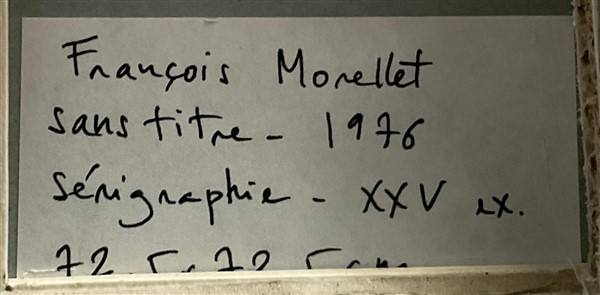 François Morellet
sans titre - 1976
sérigraphie - XXV ex.
72,5 x 72,5 cm